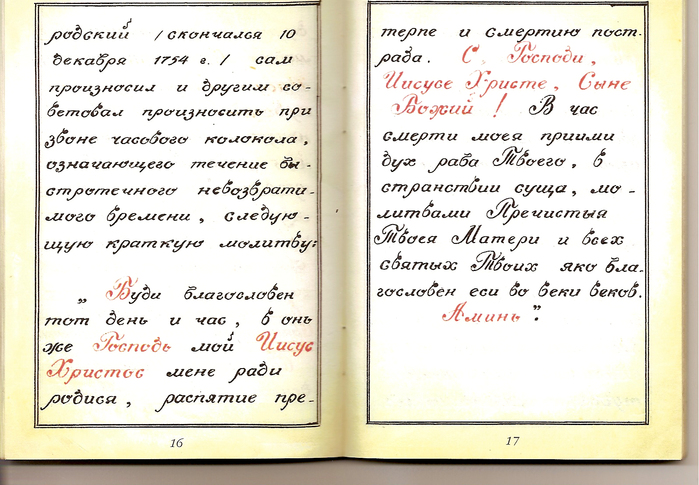 родский /скончался 10
декабря 1754 г./ сам
произносил и другим со-
ветовал произносить при
звоне часового колокола,
означающего течение бы-
стротечного невозврати-
мого времени, следую-
щую краткую молитву:
„Буди благословен
тот день и час, в онь
же Господь мой Иисус
Христос мене ради
родися, распятие пре-
16
терпе и смертию пост-
рада. О, Господи,
Иисусе Христе, Сыне
Божий! В час
смерти моея приими
дух раба Твоего, в
странствии суща, мо-
литвами Пречистыя
Твоея Матери и всех
святых Твоих яко бла-
гословен еси во веки веков.
Аминь".
17